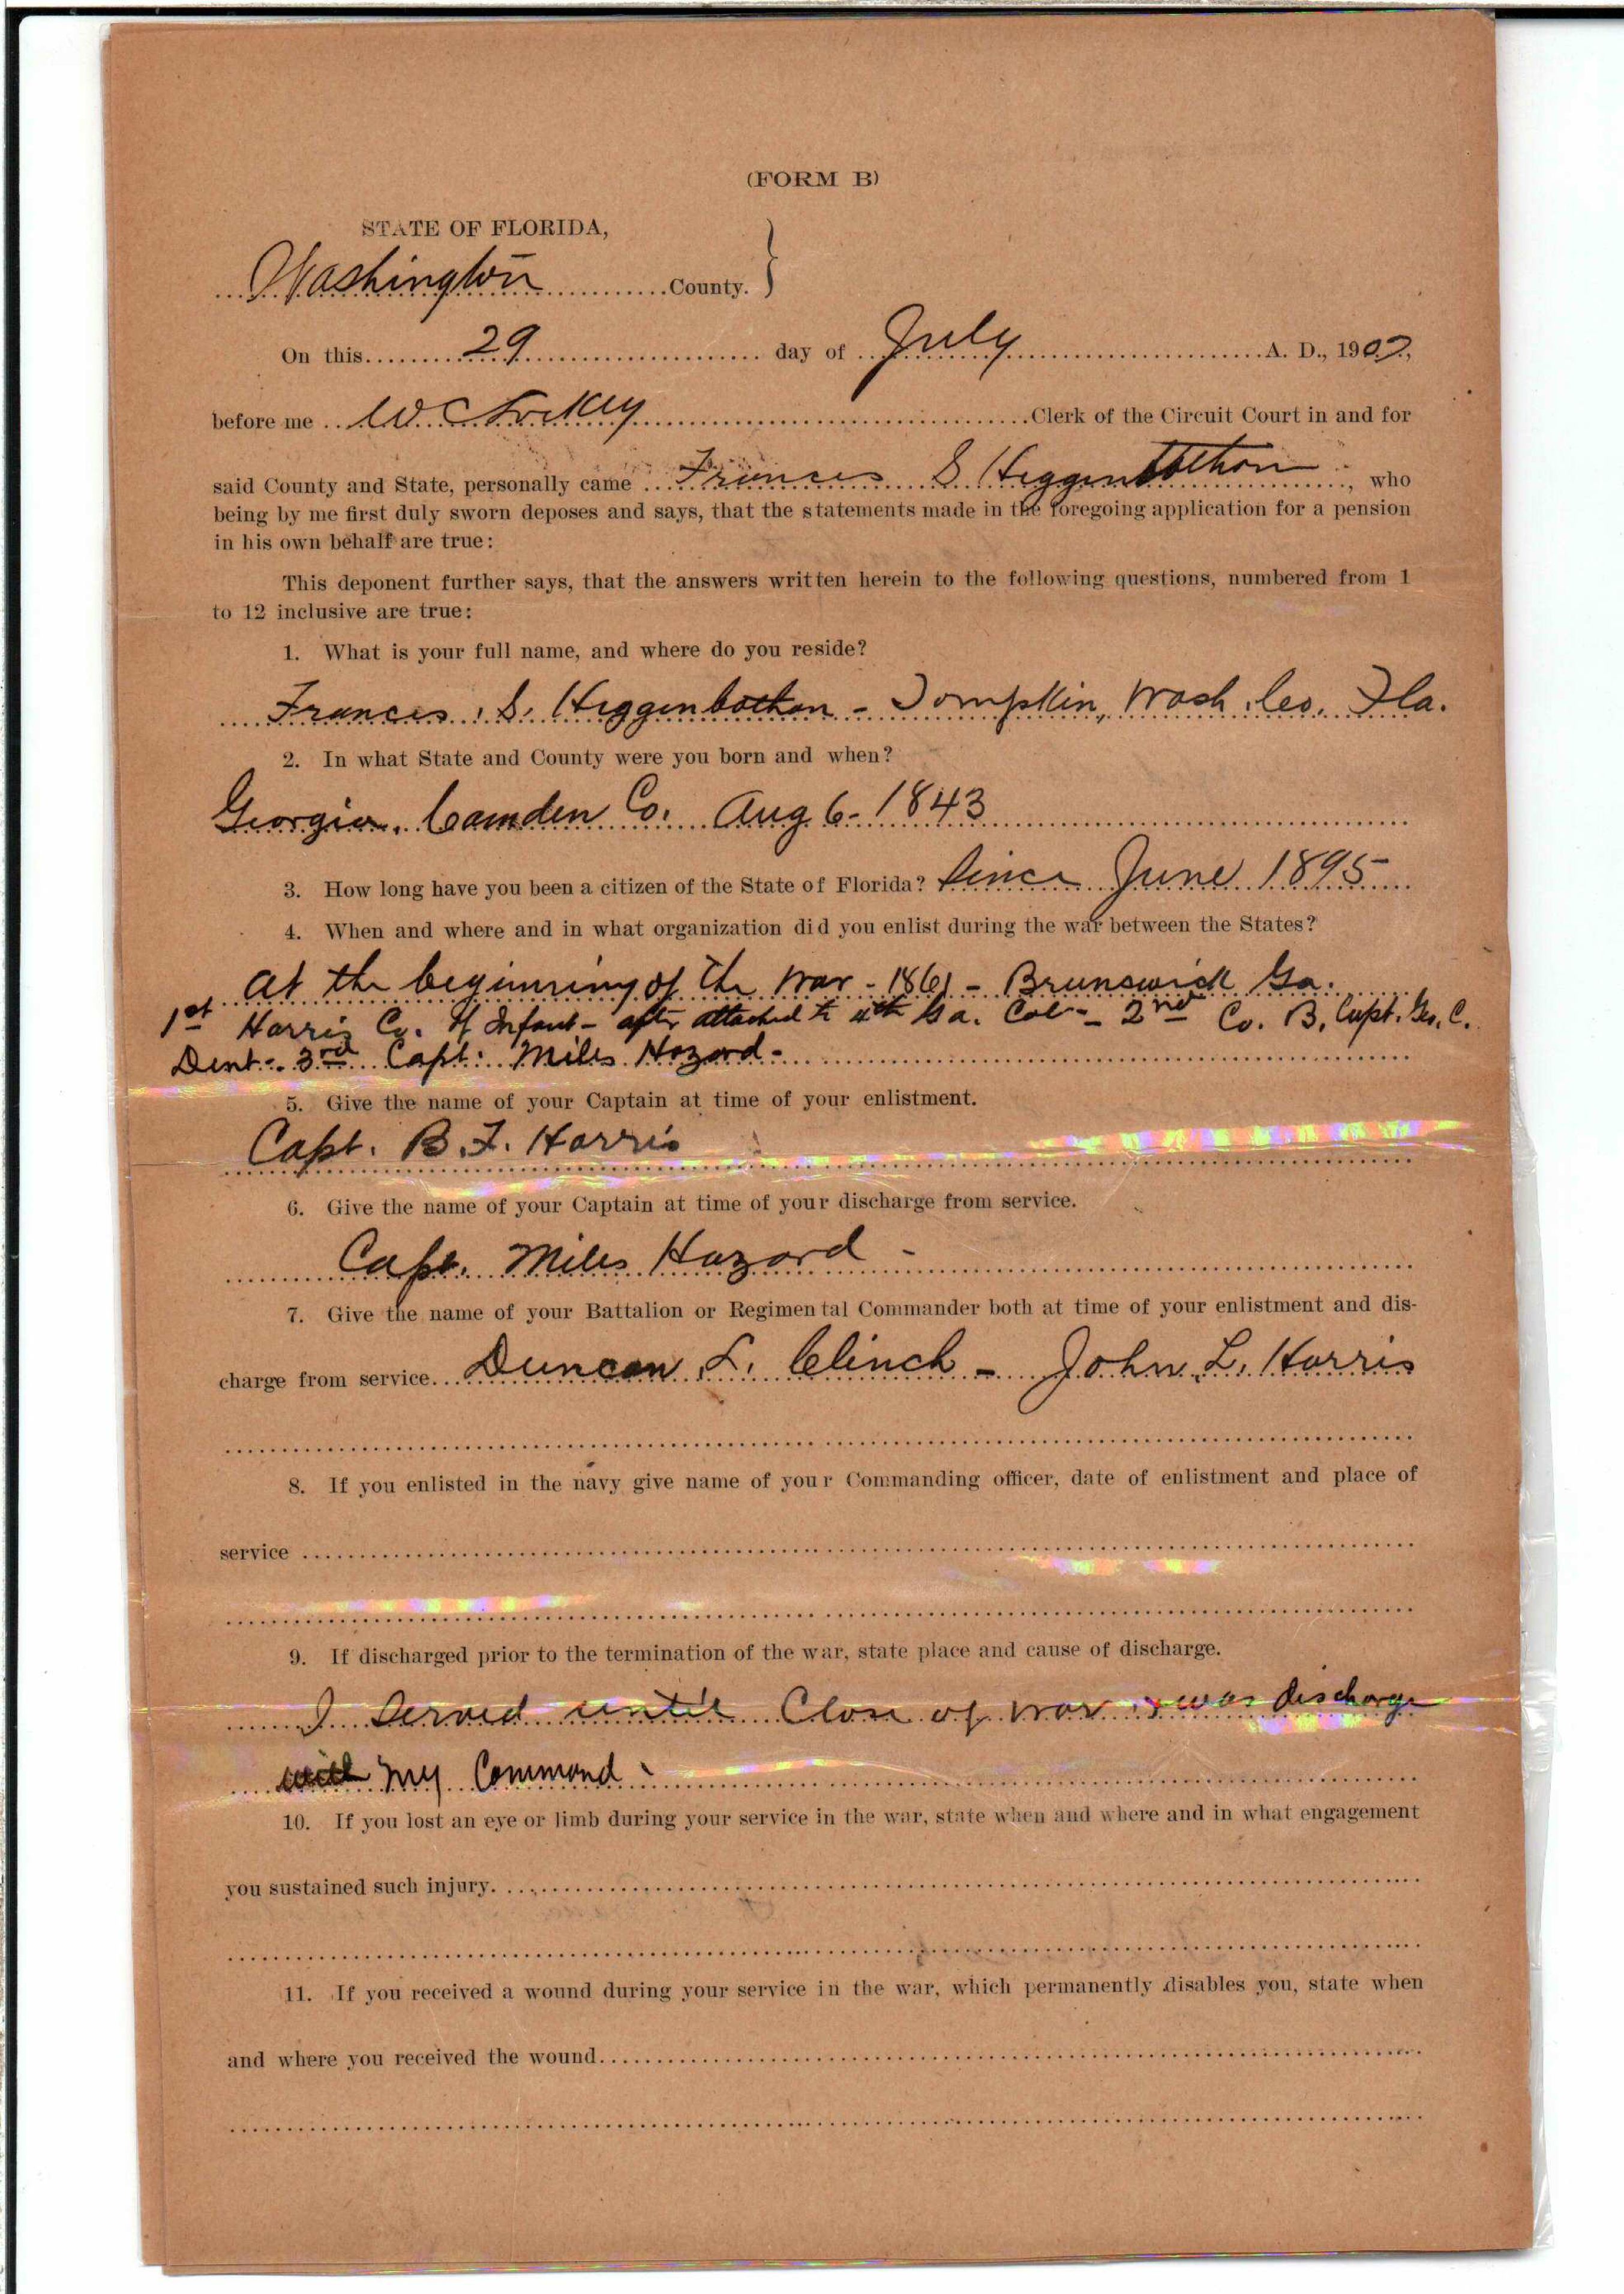 (FORM B)
STATE OF FLORIDA,
Washington County. }
On this 29 day of July A. D., 1907,
before me W C Lockey Clerk of the Circuit Court in and for
said County and State, personally came Frances S Higgenbothon, who
being by me first duly sworn deposes and says, that the statements made in the foregoing application for a pension
in his own behalf are true:
This deponent further says, that the answers written herein to the following questions, numbered from 1
to 12 inclusive are true:
1. What is your full name, and where do you reside?
Frances. S. Higgenbothon - Tompkin, Wash. Co. Fla.
2. In what State and County were you born and when?
Georgia. Camden Co. Aug 6 - 1843
3. How long have you been a citizen of the State of Florida? Since June 1895
4. When and where and in what organization did you enlist during the war between the States?
At the beginning of the war - 1861 - Brunswick Ga.
1st Harris Co. of Infant - after attached to 4th Ga. Cal - 2nd Co. B. Capt. Geo. C.
Dent - 3rd Capt. Miles Hazard -
5. Give the name of your Captain at time of your enlistment.
Capt. B. F. Harris
6. Give the name of your Captain at time of your discharge from service.
Capt. Miles Hazard -
7. Give the name of your Battalion or Regimental Commander both at time of your enlistment and dis-
charge from service. Duncan L. Clinch - John L. Harris
8. If you enlisted in the navy give name of your Commanding officer, date of enlistment and place of
service
9. If discharged prior to the termination of the war, state place and cause of discharge.
I served until Close of war & was discharge
with my Command -
10. If you lost an eye or limb during your service in the war, state when and where and in what engagement
you sustained such injury.
11. If you received a wound during your service in the war, which permanently disables you, state when
and where you received the wound